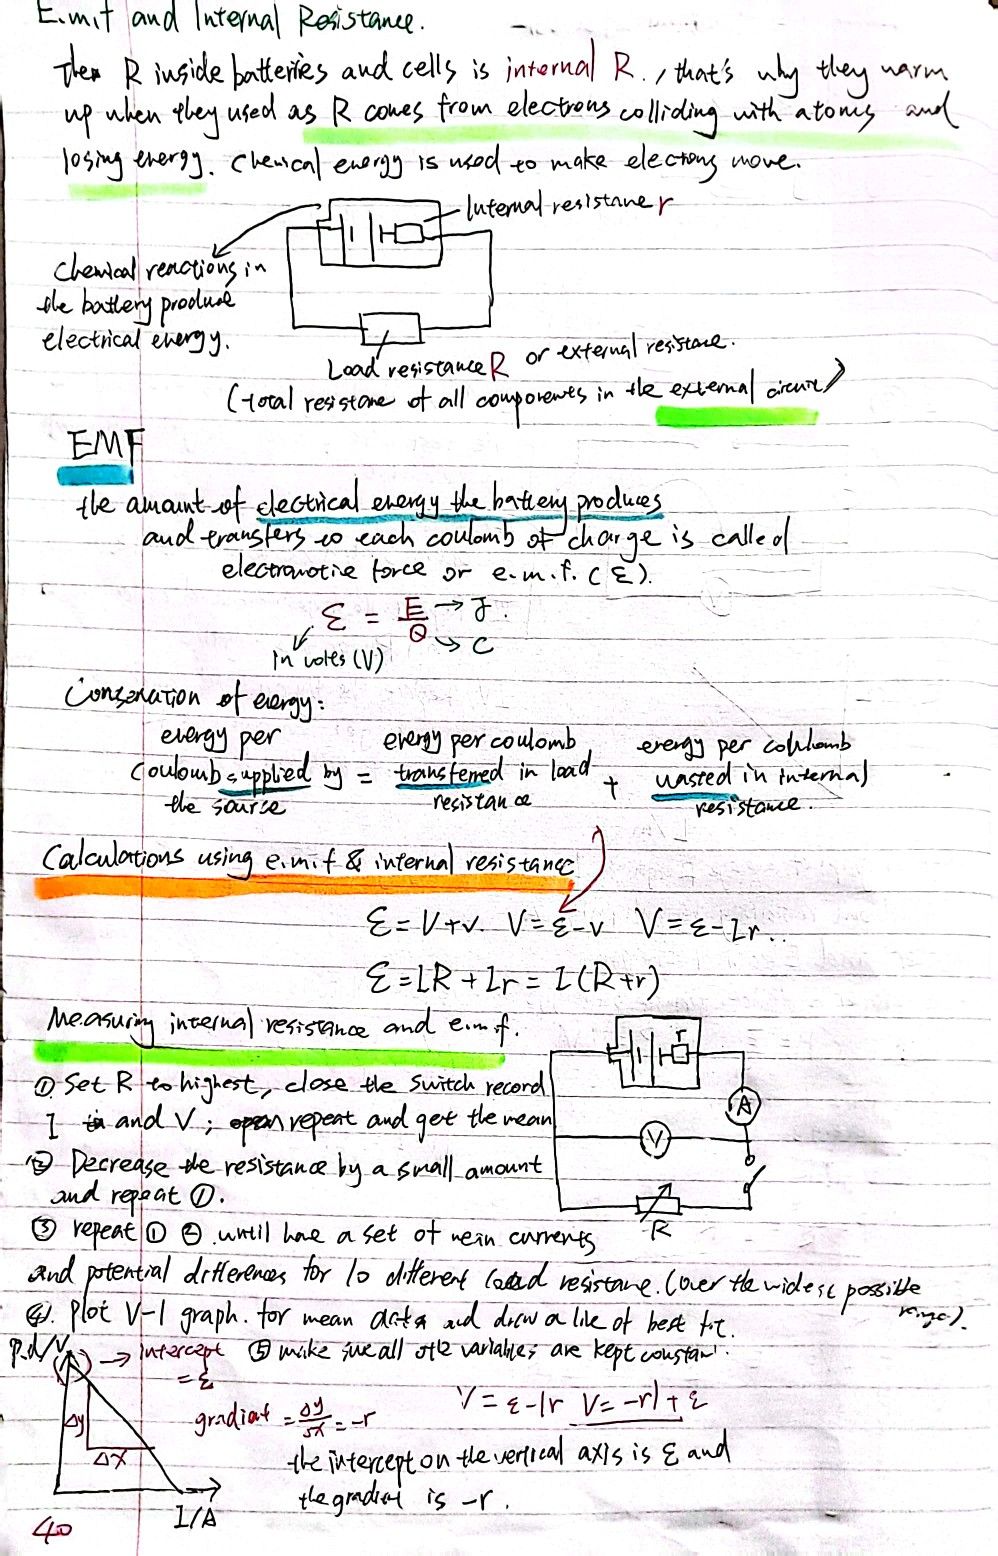 E.m.f and Internal Resistance.
The R inside batteries and cells is internal R., that's why they warm
up when they used as R comes from electrons colliding with atoms and
losing energy. Chemical energy is used to make electrons move.
Internal resistance r
Chemical reactions in
the battery produce
electrical energy.
Load resistance R or external resistance.
(total resistane of all components in the external circuit)
EMF
the amount of electrical energy the battery produces
and transfers to each coulomb of charge is called
electromotive force or e.m.f. (ε).
ε = E/Q → J.
→ C
in volts (V)
Conservation of energy:
energy per coulomb supplied by the source = energy per coulomb transferred in load resistance + energy per coulomb wasted in internal resistance.
Calculations using e.m.f & internal resistance
ε = V+v. V = ε-v V = ε-Ir..
ε = IR + Ir = I(R+r)
Measuring internal resistance and e.m.f.
r
A
V
R
① Set R to highest, close the switch record
I and V; repeat and get the mean
② Decrease the resistance by a small amount
and repeat ①.
③ repeat ① ② until have a set of mean currents
and potential differences for 10 different load resistane. (over the widest possible
range).
④. Plot V-I graph. for mean data and draw a line of best fit.
P.d/V → intercept = ε
⑤ make sure all other variables are kept constant.
gradient = Δy/Δx = -r
V = ε-Ir V = -rI + ε
Δy
Δx
the intercept on the vertical axis is ε and
the gradient is -r.
I/A
40